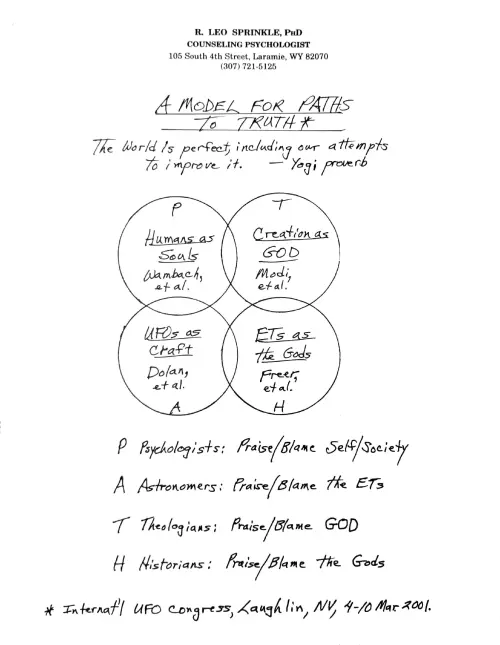 R. LEO SPRINKLE, PhD
COUNSELING PSYCHOLOGIST
105 South 4th Street, Laramie, WY 82070
(307) 721-5125
A MODEL FOR PATHS
To TRUTH *
The World Is perfect, including our attempts
to improve it. — Yogi proverb
P
Humans as
Souls
Wambach,
et al.
T
Creation as
GOD
Modi,
et al.
UFOs as
Craft
Dolan,
et al.
A
ETs as
the Gods
Freer,
et al.
H
P Psychologists: Praise/Blame Self/Society
A Astronomers: Praise/Blame the ETs
T Theologians: Praise/Blame GOD
H Historians: Praise/Blame the Gods
* Internat'l UFO Congress, Laughlin, NV, 4-10 Mar 2001.